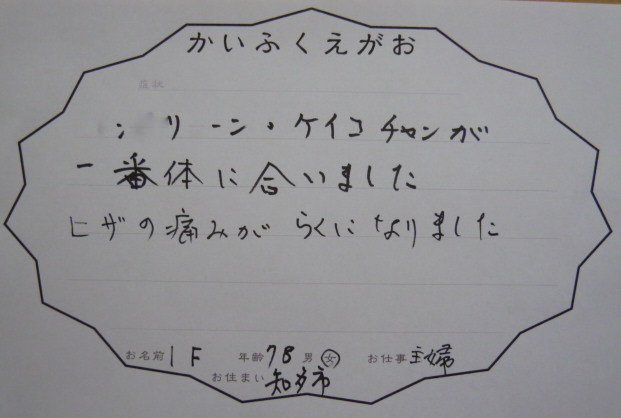 かいふくえがお
症状
シリーン・ケイコチャンが
一番体に合いました
ヒザの痛みがらくになりました
お名前 I F 年齢 78 男 女 お仕事 主婦
お住まい 知多市